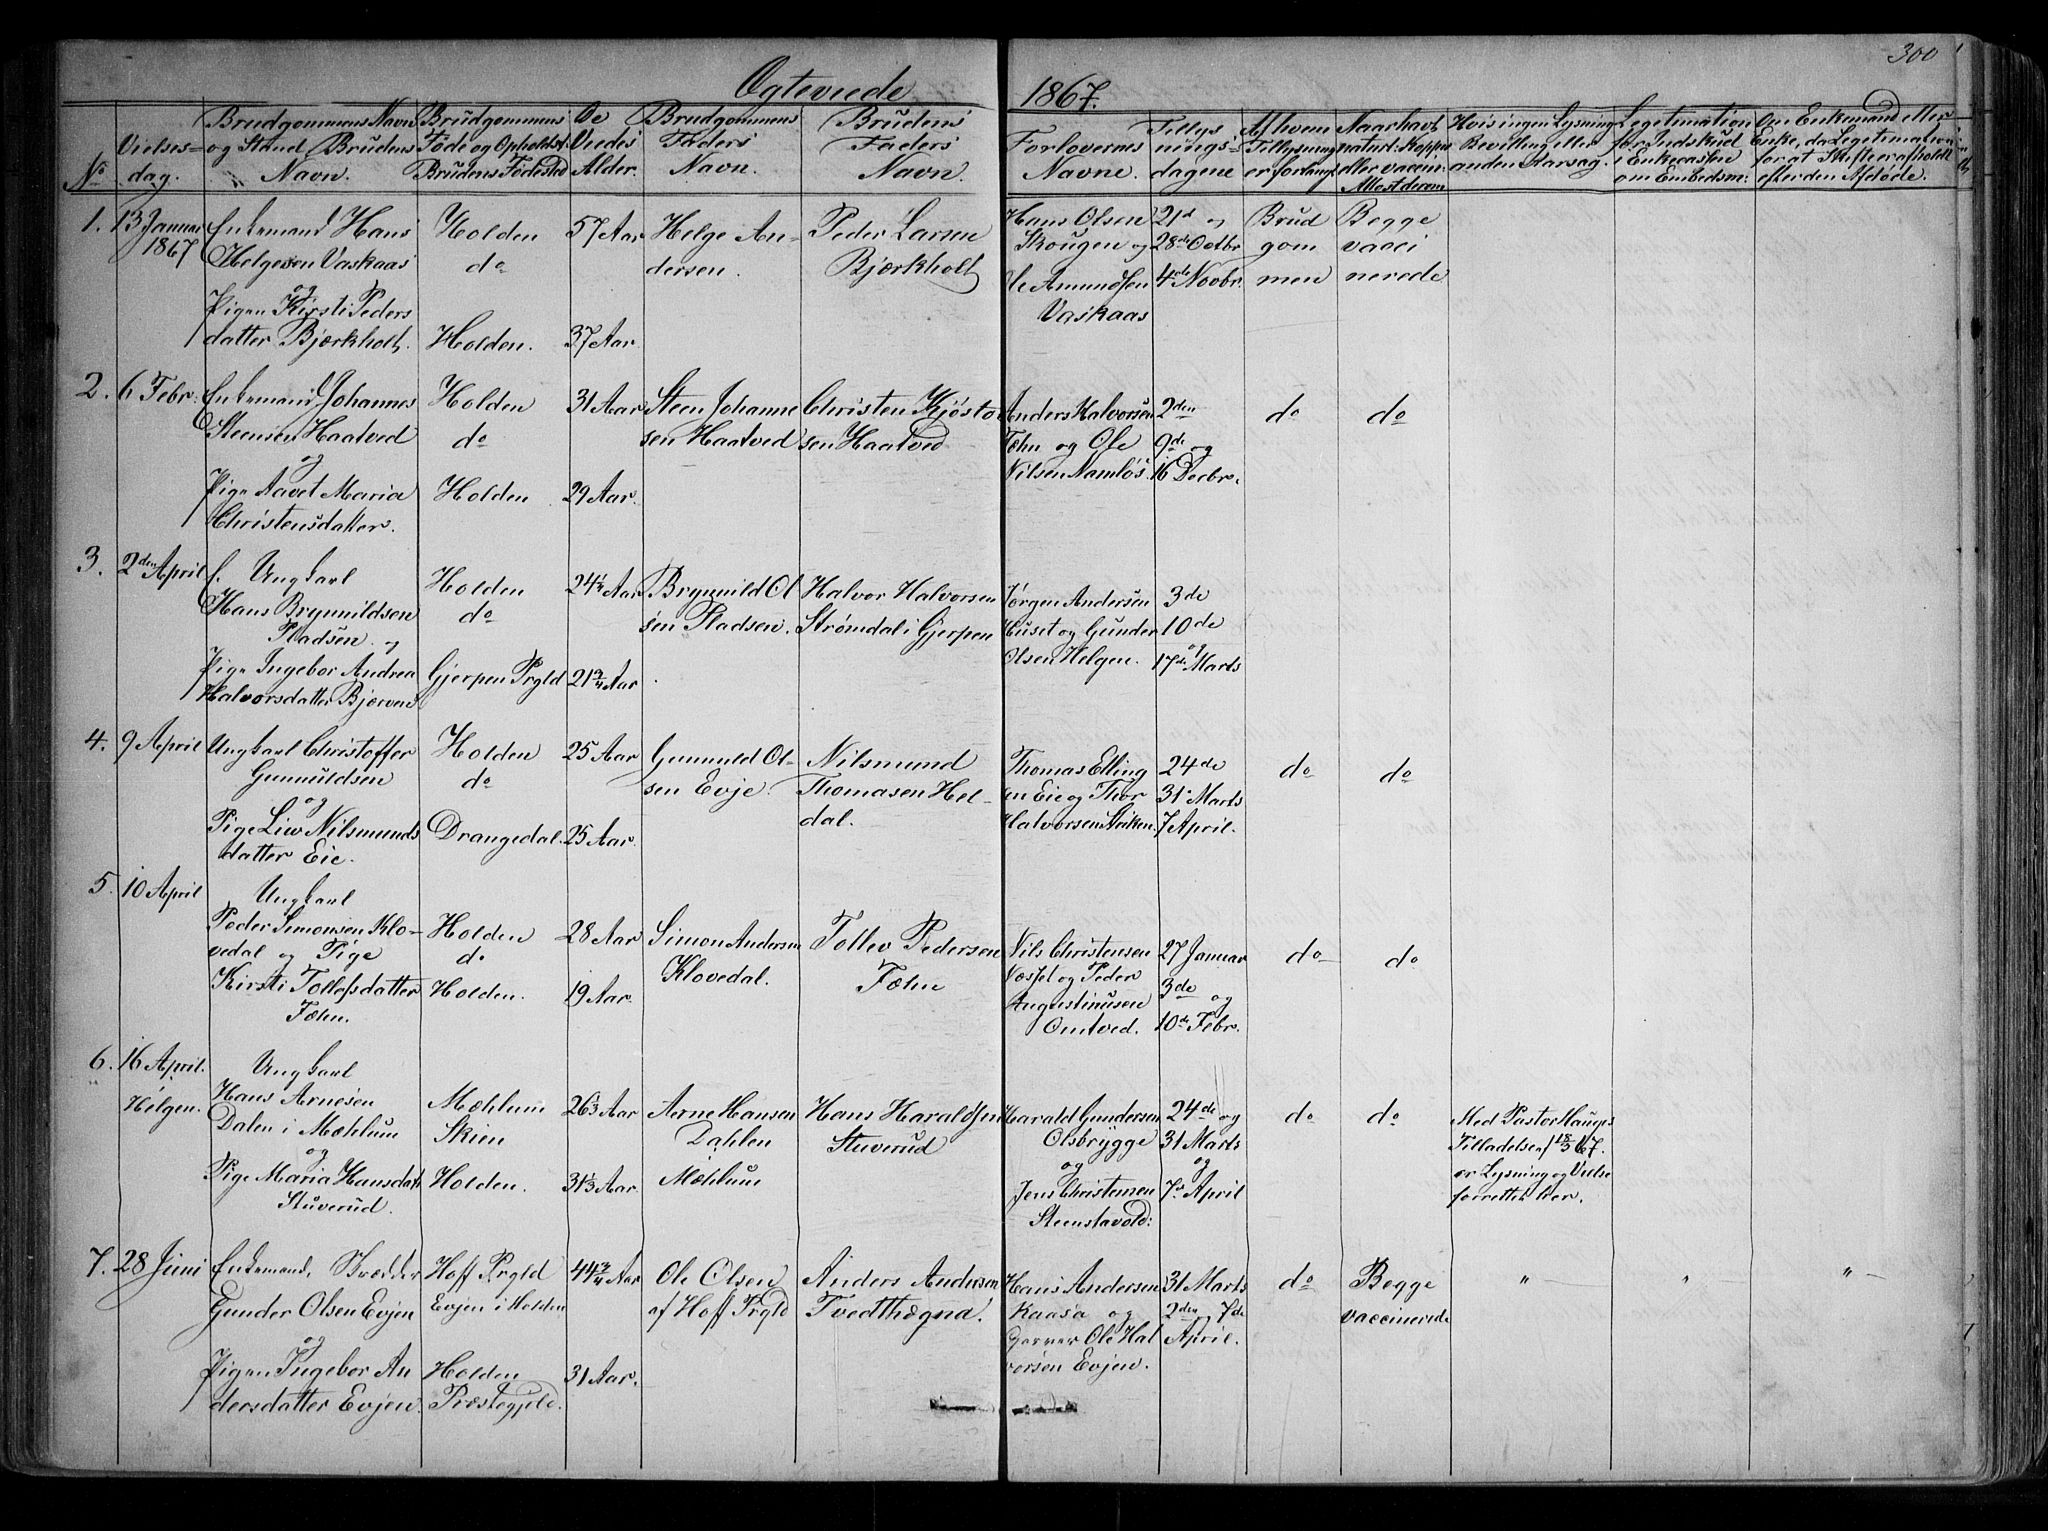 300
Ogteviede 1867.
No
Vielses=
dag.
Brudgommens Navn
og Stand Brudens
Navn.
Brudgommens
Føde og Opholdst.
Brudens Fødested
De
Viedes
Alder.
Brudgommens
Faders
Navn.
Brudens
Faders
Navn.
Forlovernes
Navne.
Tillys
nings=
dagene
Af hvem
Tillysning
er forlangt
Naar havt
naturl: Kopper
eller vaccin:
Attest derom
Hvis ingen Lysning
Bevilling eller
anden Aarsag.
Legitimation
for Indskud
i Enkecassen
om Embedsm:
Om Enkemand eller
Enke, da Legitimation
for at Skifte er afholdt
efter den Afdøde.
1.
13 Januar
1867
Enkemand Hans
Helgesen Vaskaas
og
Pigen Kirsti Peders
datter Bjørkholt.
Holden
do
Holden.
57 Aar
37 Aar
Helge An-
dersen.
Peder Larsen
Bjørkholt
Hans Olsen
Skougen og
Ole Amundsen
Vaskaas
21d og
28de Octbr
4de Novbr.
Brud
gom
men
Begge
vacci
nerede
2.
6 Febr:
Enkemand Johannes
Steensen Haatved
og
Pige Aavet Maria
Christensdatter.
Holden
do
Holden
31 Aar
29 Aar.
Steen Johanne
sen Haatved
Christen Kjøsto
sen Haatved
Anders Halvorsen
Fæhn og Ole
Nilsen Namløs.
2den
9de og
16 Decbr.
do
do
3.
2den April
f. Ungkarl
Hans Brynnildsen
Pladsen og
Pige Ingebor Andrea
Halvorsdatter Bjerven
Holden
do
Gjerpen Prgld
24½ Aar
21¾ Aar
Brynnild Ol
sen Pladsen.
Halvor Halvorsen
Strømdal i Gjerpen
Jørgen Andersen
Huset og Gunder
Olsen Helgen.
3de
10de
og
17de Marts
4.
9 April
Ungkarl Christoffer
Gunnuldsen
og
Pige Liv Nilsmunds
datter Eie.
Holden
do
Drangedal.
25 Aar
25 Aar.
Gunnuld Ol-
sen Evje.
Nilsmund
Thomasen Hel-
dal.
Thomas Elling
en Eie og Thor
Halvorsen
24de
31 Marts
7 April.
do
do
5.
10 April
Ungkarl
Peder Simonsen Klo-
vedal og Pige
Kirsti Tollefsdatter
Fæhn.
Holden
do
Holden.
28 Aar
19 Aar
Simon Andersen
Klovedal.
Tollev Pedersen
Fæhn
Nils Christensen
Næsset og Peder
Augustinusen
Omtved.
27 Januar
3de
og
10de Febr.
do
do
6.
16 April.
Helgen.
Ungkarl
Hans Arnesen
Dalen i Mæhlum
og
Pige Maria Hansdatt
Stuverud.
Mæhlum
Skien
Holden.
26⅓ Aar
31⅓ Aar.
Arne Hansen
Dahlen
Mæhlum
Hans Haraldsen
Stuverud
Harald Gundersen
Olsbrygge
og
Jens Christensen
Steenstavold:
24de og
31 Marts
og
7d April
do
do
Med Pastor Hauges
Tilladelse 18/3 67.
er Lysning og Vielse
forrettet her.
7.
28 Juni
Enkemand, Skrædder
Gunder Olsen Evjen
og
Pigen Ingebor An
dersdatter Evjen.
Hoff Prgld
Evjen i Holden
Holden
Præstegjeld.
44¾ Aar
31 Aar.
Ole Olsen
af Hoff Prgld
Anders Andersen
Tvedthægna.
Hans Andersen
Kaasa og
Garver Ole Hal
vorsen Evjen.
31 Marts
2den og 7de
April.
do
Begge
vaccinerede
" —
"
" —